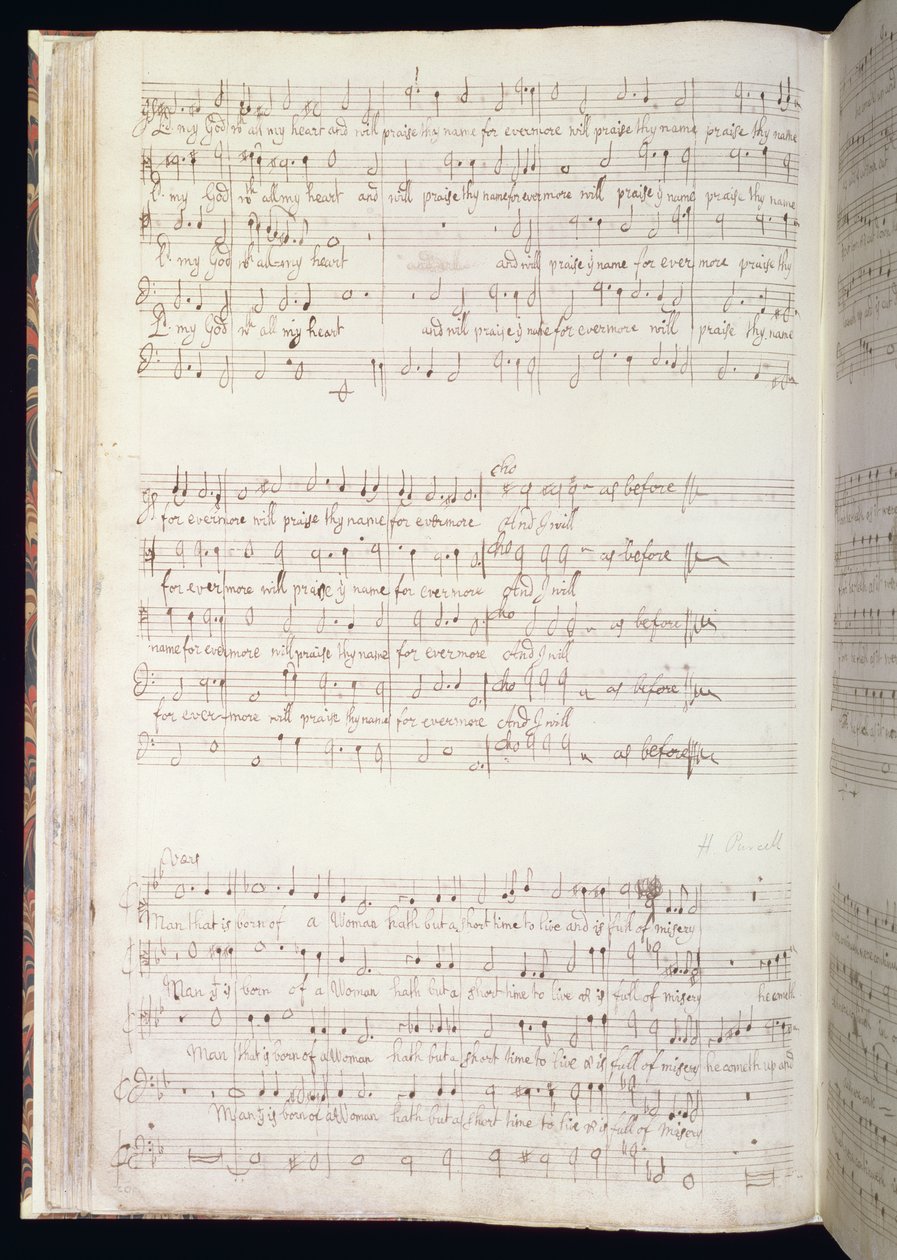 Ld. my God wth all my heart and will praise thy name for evermore will praise thy name praise thy name
Ld. my God wth all my heart and will praise thy name for evermore will praise yr name praise thy name
Ld. my God wth all my heart and will praise yr name for ever more praise thy
Ld. my God wth all my heart and will praise yr name for evermore will praise thy name
cho
as before
for evermore will praise thy name for evermore And I will
cho
as before
for evermore will praise yr name for evermore And I will
cho
as before
name for evermore will praise thy name for evermore And I will
cho
as before
for ever-more will praise thy name for evermore And I will
cho
as before
H Purcell
Vers
Man that is born of a Woman hath but a short time to live and is full of misery
Man yt is born of a Woman hath but a short time to live & is full of misery he cometh
Man that is born of a Woman hath but a short time to live & is full of misery he cometh up and
Man yt is born of a Woman hath but a short time to live & is full of misery